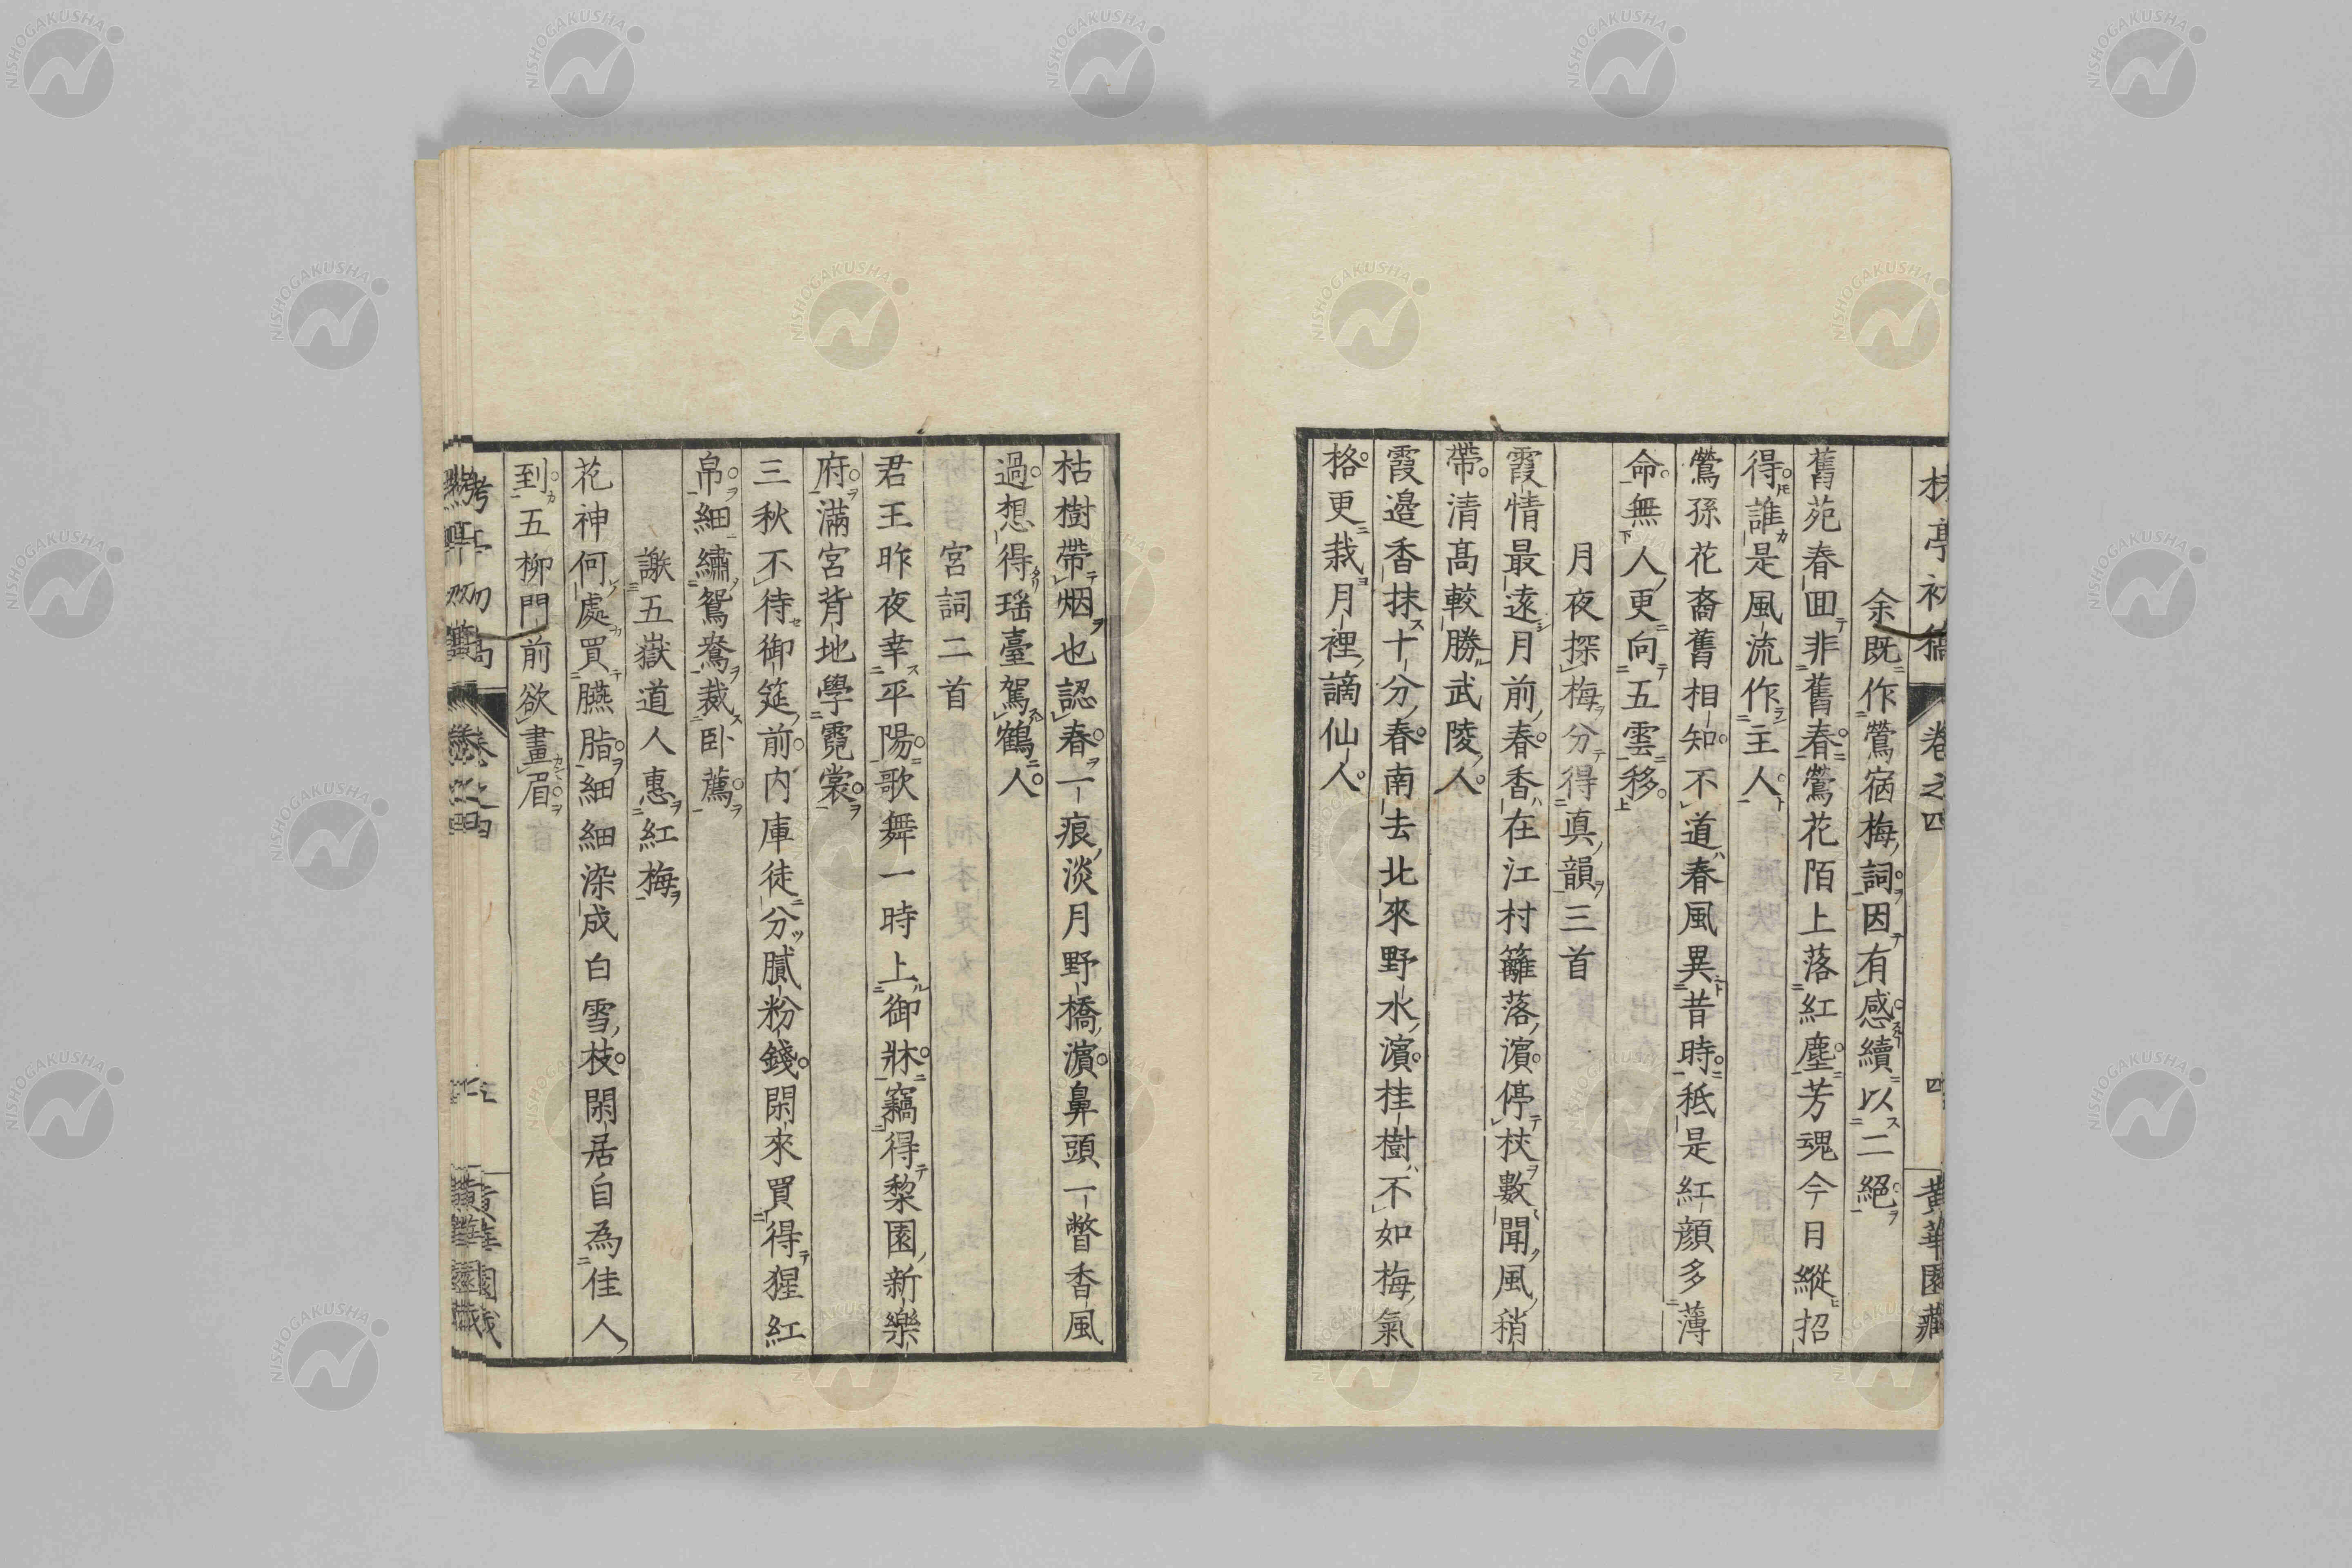 亭初稿 卷之四 四 黄華園藏
余既作鶯宿梅詞因有感續以二絕
舊苑春回非舊春鶯花陌上落紅塵芳魂今日縱招
得誰是風流作主人
鶯孫花裔舊相知不道春風異昔時秖是紅顔多薄
命無人更向五雲移
月夜探梅分得真韻三首
霞情最遠月前春香在江村籬落濵停杖數聞風稍
帶清髙較勝武陵人
霞邉香抹十分春南去北來野水濵桂樹不如梅氣
格更栽月裡謫仙人
枯樹帶烟也認春一痕淡月野橋濵鼻頭一瞥香風
過想得瑶臺駕鶴人
宮詞二首
君王昨夜幸平陽歌舞一時上御牀竊得梨園新樂
府滿宮背地學霓裳
三秋不待御筵前内庫徒分膩粉錢閑來買得猩紅
帛細繡鴛鴦裁卧薦
謝五嶽道人惠紅梅
花神何處買臙脂細細染成白雪枝閑居自為佳人
到五柳門前欲畫眉
NISHOGAKUSHA